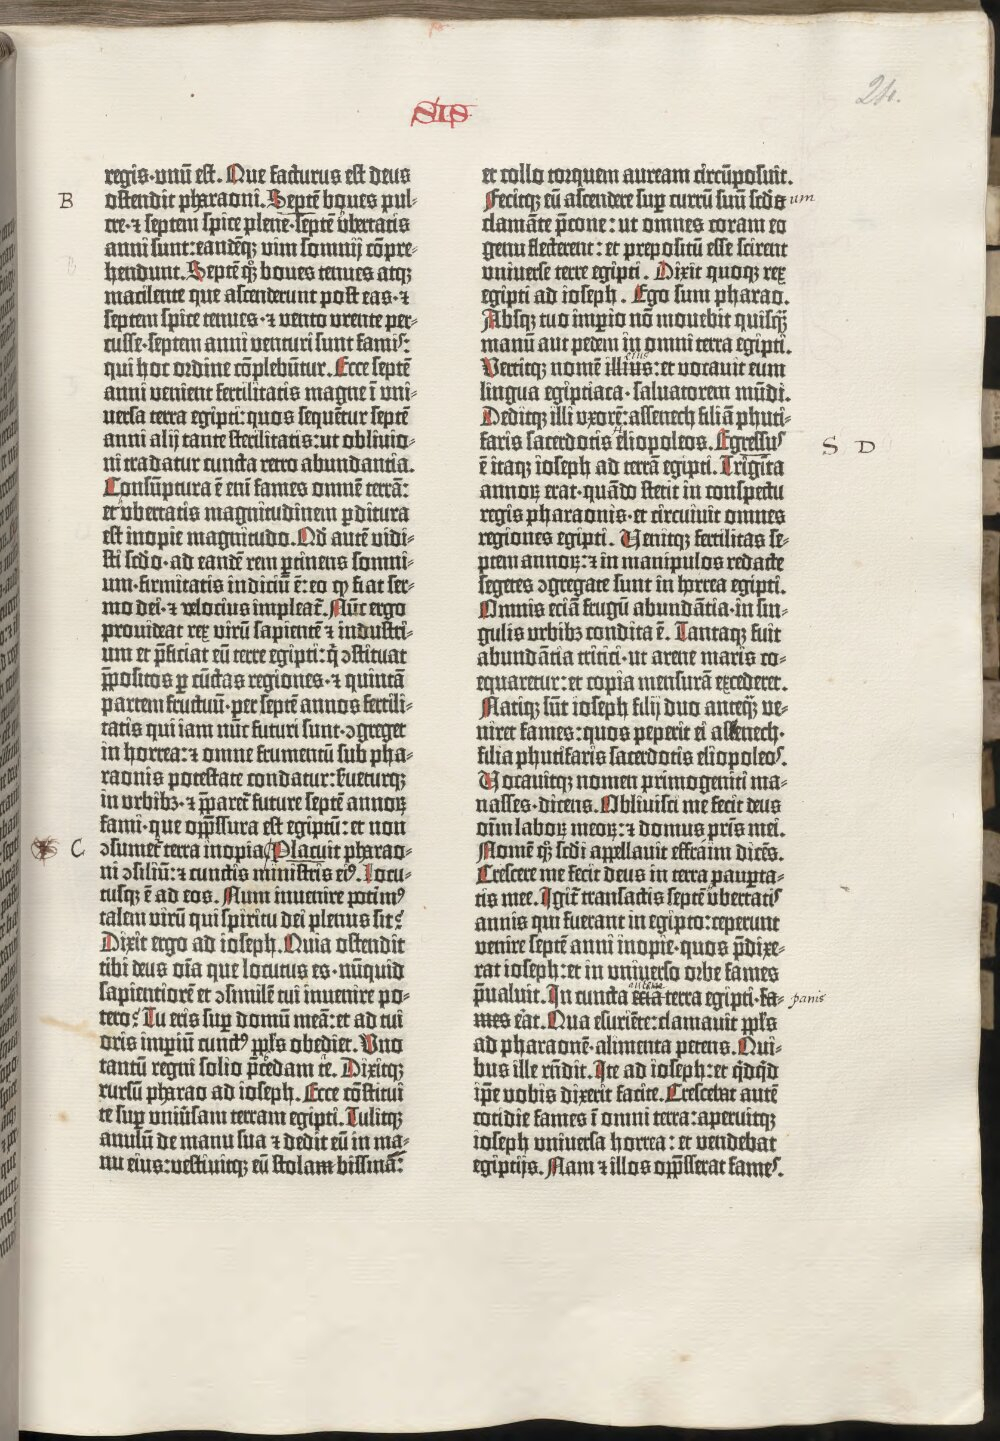 SIS
24.
regis·vnū est. Que facturus est deus
B
ostendit pharaoni. Septē boues pul-
cre·⁊ septem spice plene·septē vbertatis
anni sunt:eandēqꝫ vim somnij cōpre-
hendunt. Septē qꝫ boues tenues atqꝫ
macilente que ascenderunt post eas·⁊
septem spice tenues·⁊ vento vrente per-
cusse·septem anni venturi sunt famis:
qui hoc ordine cōplebūtur. Ecce septē
anni venient fertilitatis magne ī vni-
uersa terra egipti: quos sequētur septē
anni alij tante sterilitatis:ut obliuio-
ni tradatur cuncta retro abundantia.
Consūptura ē eni fames omnē terrā:
et vbertatis magnitudinem ꝑditura
est inopie magnitudo. Qd autē vidi-
sti scdo·ad eandē rem ꝑtinens somni-
um·firmitatis indiciū ē:eo qꝫ fiat ser-
mo dei·⁊ velocius impleat̄. Nūc ergo
prouideat rex virū sapientē ⁊ industri-
um et p̄ficiat eū terre egipti:q̄ ↄstituat
p̄positos ꝑ cūctas regiones·⁊ quintā
partem fructuū·per septē annos fertili-
tatis qui iam nūc futuri sunt·ↄgreget
in horrea:⁊ omne frumentū sub pha-
raonis potestate condatur:srueturqꝫ
in vrbibꝫ·⁊ p̄paret̄ future septē annoꝝ
fami·que opp̄ssura est egiptū:et non
C
ↄsumet̄ terra inopia. Placuit pharao-
ni ↄsiliū:⁊ cunctis ministris ei⁹. Locu-
tusqꝫ ē ad eos. Num inuenire potim⁹
talem virū qui spiritu dei plenus sit?
Dixit ergo ad ioseph. Quia ostendit
tibi deus oīa que locutus es·nūquid
sapientiorē et ↄsimilē tui inuenire po-
tero? Tu eris suꝑ domū meā:et ad tui
oris imperiū cunct⁹ pp̄ls obediet. Vno
tantū regni solio p̄cedam te. Dixitqꝫ
rursū pharao ad ioseph. Ecce cōstitui
te suꝑ vniūsam terram egipti. Tulitqꝫ
anulū de manu sua ⁊ dedit eū in ma-
nu eius:vestiuitqꝫ eū stolam bissinā:
et collo torquem auream circūposuit.
Fecitqꝫ eū ascendere suꝑ currū suū scdo um
clamāte p̄cone: ut omnes coram eo
genu flecterent: et prepositū esse scirent
vniuerse terre egipti. Dixit quoqꝫ rex
egipti ad ioseph. Ego sum pharao.
Absqꝫ tuo imꝑio nō mouebit quisq̄ꝫ
manū aut pedem in omni terra egipti.
eius
Vertitqꝫ nomē illius:et vocauit eum
lingua egiptiaca·saluatorem mūdi.
Deditqꝫ illi vxorē:assenech filiā phuti-
faris sacerdotis eliopoleos. Egressus
S D
ē itaqꝫ ioseph ad terrā egipti. Triginta
annoꝝ erat·quādo stetit in conspectu
regis pharaonis·et circuiuit omnes
regiones egipti. Venitqꝫ fertilitas se-
ptem annoꝝ:⁊ in manipulos redacte
segetes ↄgregate sunt in horrea egipti.
Omnis eciā frugū abundātia·in sin-
gulis vrbibꝫ condita ē. Tantaqꝫ fuit
abundātia tritici·ut arene maris co-
equaretur:et copia mensurā excederet.
Natiqꝫ sūt ioseph filij duo anteq̄ꝫ ve-
niret fames:quos peperit ei assenech·
filia phutifaris sacerdotis eliopoleos.
Vocauitqꝫ nomen primogeniti ma-
nasses·dicens. Obliuisci me fecit deus
oīm laboꝝ meoꝝ:⁊ domus pr̄is mei.
Nomē qꝫ scdi appellauit effraim dicēs.
Crescere me fecit deus in terra pauꝑta-
tis mee. Igit̄ transactis septē vbertatis
annis qui fuerant in egipto:ceperunt
venire septē anni inopie·quos p̄dixe-
rat ioseph:et in vniuerso orbe fames
autem
p̄ualuit. In cuncta eciā terra egipti·fa- panis
mes erat. Qua esuriēte:clamauit pp̄ls
ad pharaonē·alimenta petens. Qui-
bus ille rn̄dit. Ite ad ioseph:et qd̄qd
ip̄e vobis dixerit facite. Crescebat autē
cotidie fames ī omni terra:aperuitqꝫ
ioseph vniuersa horrea: et vendebat
egiptijs. Nam ⁊ illos opp̄sserat fames.